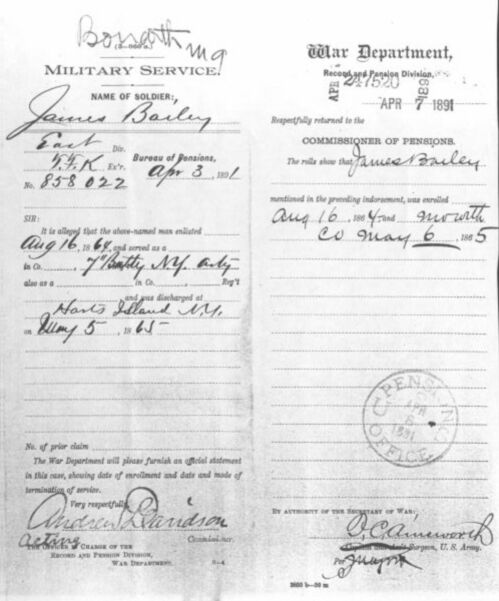 (3-060 a.)
MILITARY SERVICE.
NAME OF SOLDIER:
James Bailey
East Div.
Ex'r.
No. 858022
Bureau of Pensions,
Apr 3, 1891
SIR:
It is alleged that the above-named man enlisted
Aug 16, 1864, and served as a
in Co. , 7" Batty N.Y. Arty
also as a in Co. , Reg't
and was discharged at
Harts Island N.Y.
on May 5, 1865
No. of prior claim
The War Department will please furnish an official statement
in this case, showing date of enrollment and date and mode of
termination of service.
Very respectfully,
Andrew Davidson
Acting Commissioner.
THE OFFICER IN CHARGE OF THE
RECORD AND PENSION DIVISION,
WAR DEPARTMENT. 3-4
War Department,
Record and Pension Division,
APR 247520 1891
APR 7 1891
Respectfully returned to the
COMMISSIONER OF PENSIONS.
The rolls show that James Bailey
mentioned in the preceding indorsement, was enrolled
Aug 16 1864 and M.O. with
Co May 6, 1865
U.S. PENSION OFFICE.
APR
1891
BY AUTHORITY OF THE SECRETARY OF WAR:
F. C. Ainsworth
Surgeon, U. S. Army.
Per
Major